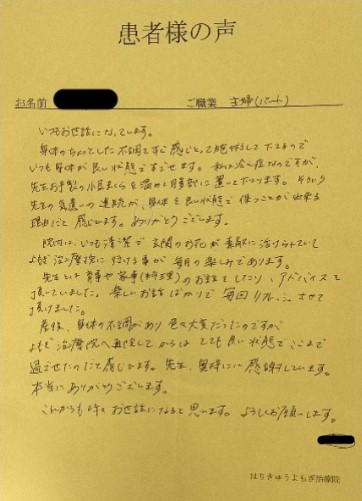 患者様の声
お名前 ご職業 主婦(パート)
いつもお世話になっています。
身体のちょっとした不調でもすぐ感じとって施術して下さるので
いつも身体が良い状態ですごせます。私は冷え性なのですが、
先生お手製の小豆まくらを温めて腰部に置いて下さります。そういう
先生の気遣いの連続が、身体を良い状態で保つことが出来る
理由だと感じます。ありがとうございます。
院内は、いつも清潔で玄関のお花が素敵に活けられていて
よもぎ治療院に行ける事が毎月の楽しみであります。
先生とは育事や家事(料理)のお話をしたり、アドバイスを
頂いていました。楽しいお話ばかりで毎回リフレッシュさせて
頂けました。
産後、身体の不調があり色々大変だったのですが
よもぎ治療院へ再院してからはとても良い状態でここまで
過ごせたのだと感じます。先生、奥様に感謝しています。
本当にありがとうございます。
これからも時々お世話になると思います。よろしくお願いします。
はりきゅうよもぎ治療院